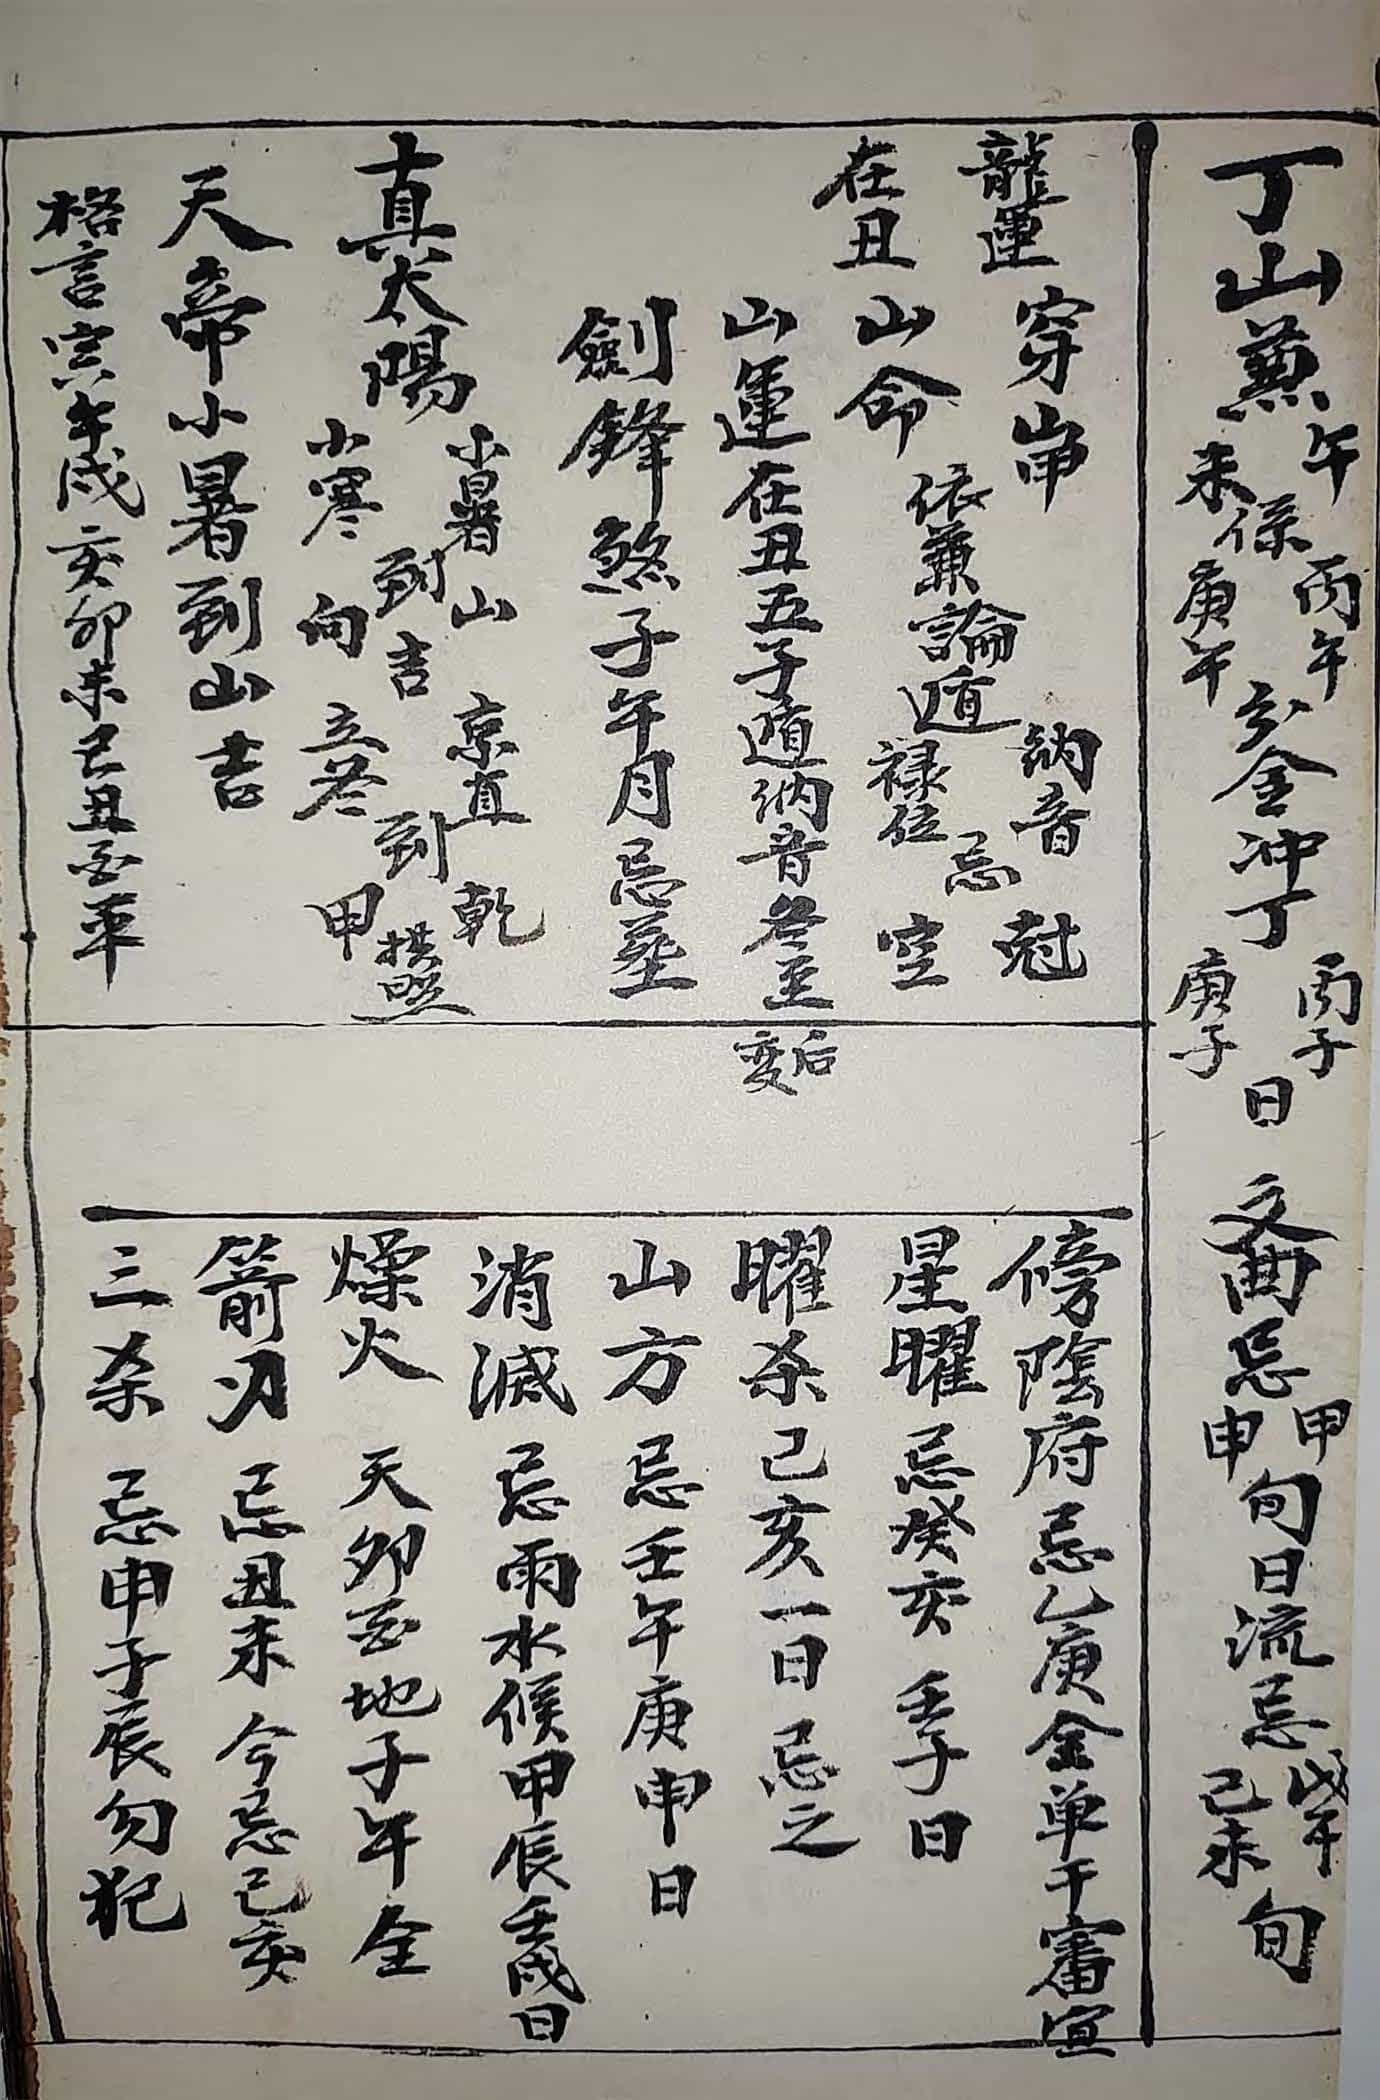 丁山兼午未係丙午庚午分金冲丁丙子庚子日 文曲忌甲申旬日流忌戊午己未旬
龍運在丑
穿山甲 納音尅
山命依兼論遁禄位忌空
山運在丑五子遁納音冬至后变
劍鋒煞子午月忌葬
真太陽小暑小寒到山向吉 京直立冬到乾甲拱照
天帝小暑到山吉
格言寅午戌亥卯未巳丑至平
傍陰府忌乙庚金单干審宜
星曜忌癸亥壬子日
曜杀己亥一日忌之
山方忌壬午庚申日
消滅忌雨水候甲辰壬戌日
燥火天卯至地子午全
箭刃忌丑未今忌己亥
三杀忌申子辰勿犯